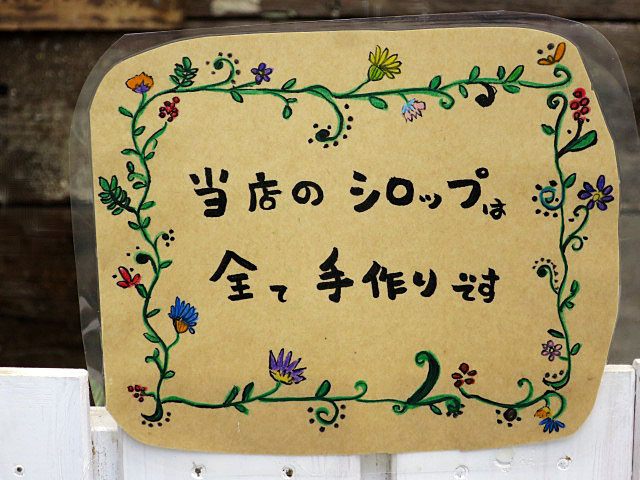 当店のシロップは
全て手作りです